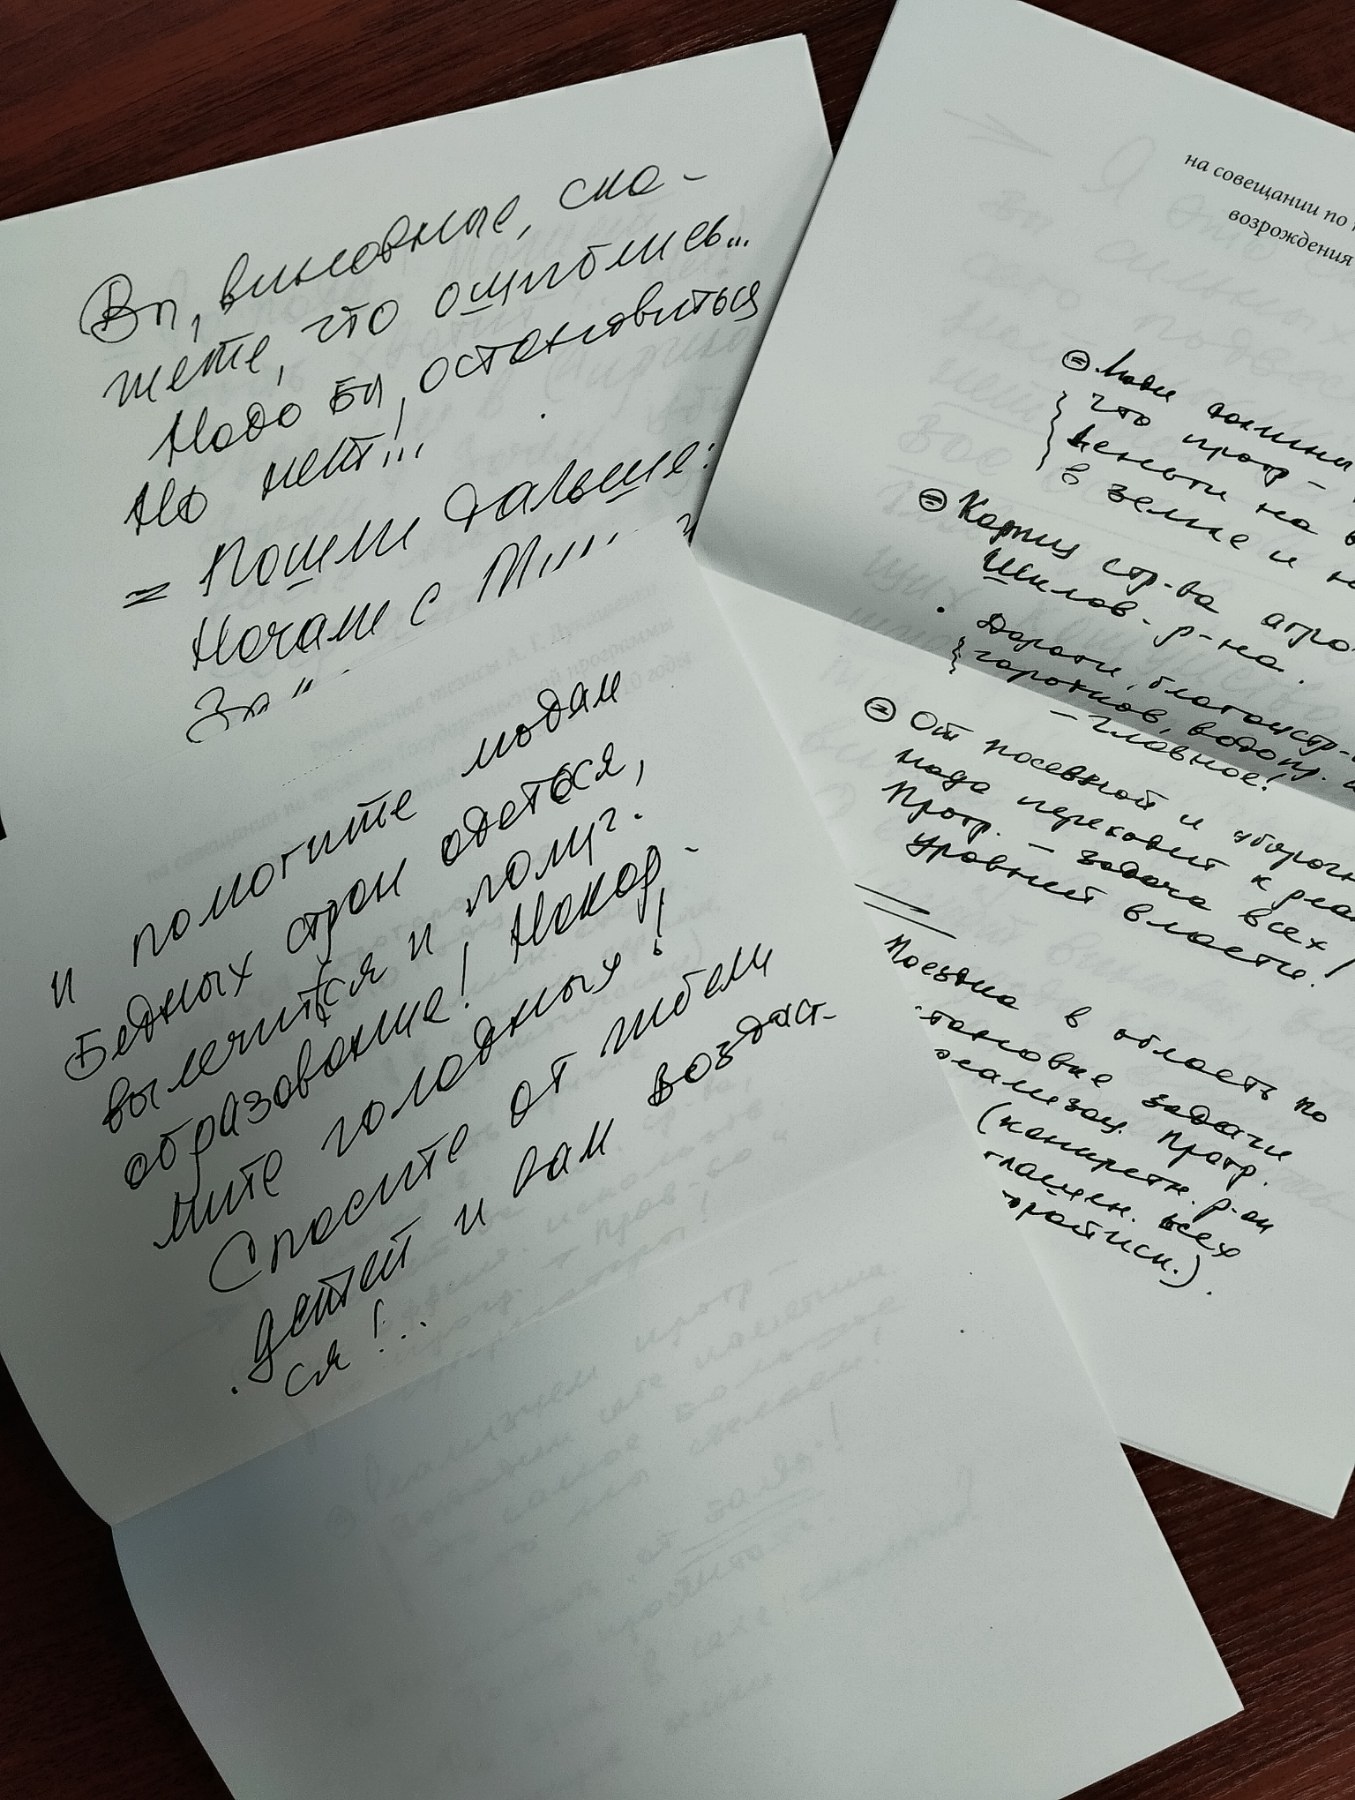 Вы, виновные, ска-
жете, что ошиблись...
Надо бы, остановиться
Но нет!..
= Пошли дальше:
Начали с
и помогите людям
бедных стран одеться,
вылечиться и получ.
образование! Накор-
мите голодных!
Спасите от гибели
детей и вам воздаст-
ся!..
на совещании по
возрождения
Люди должны
что прогр -
деньги на
в земле и
Карта стр-ва агро
Шклов. р-на.
Дороги, благоустр-
городков, водопр.
- главное!
От посевной и уборочн
надо переходить к реа
Прогр. - задача всех
уровней власти!
Поездка в область по
задачи
реализац. Прогр.
(конкретн. р-он
всех